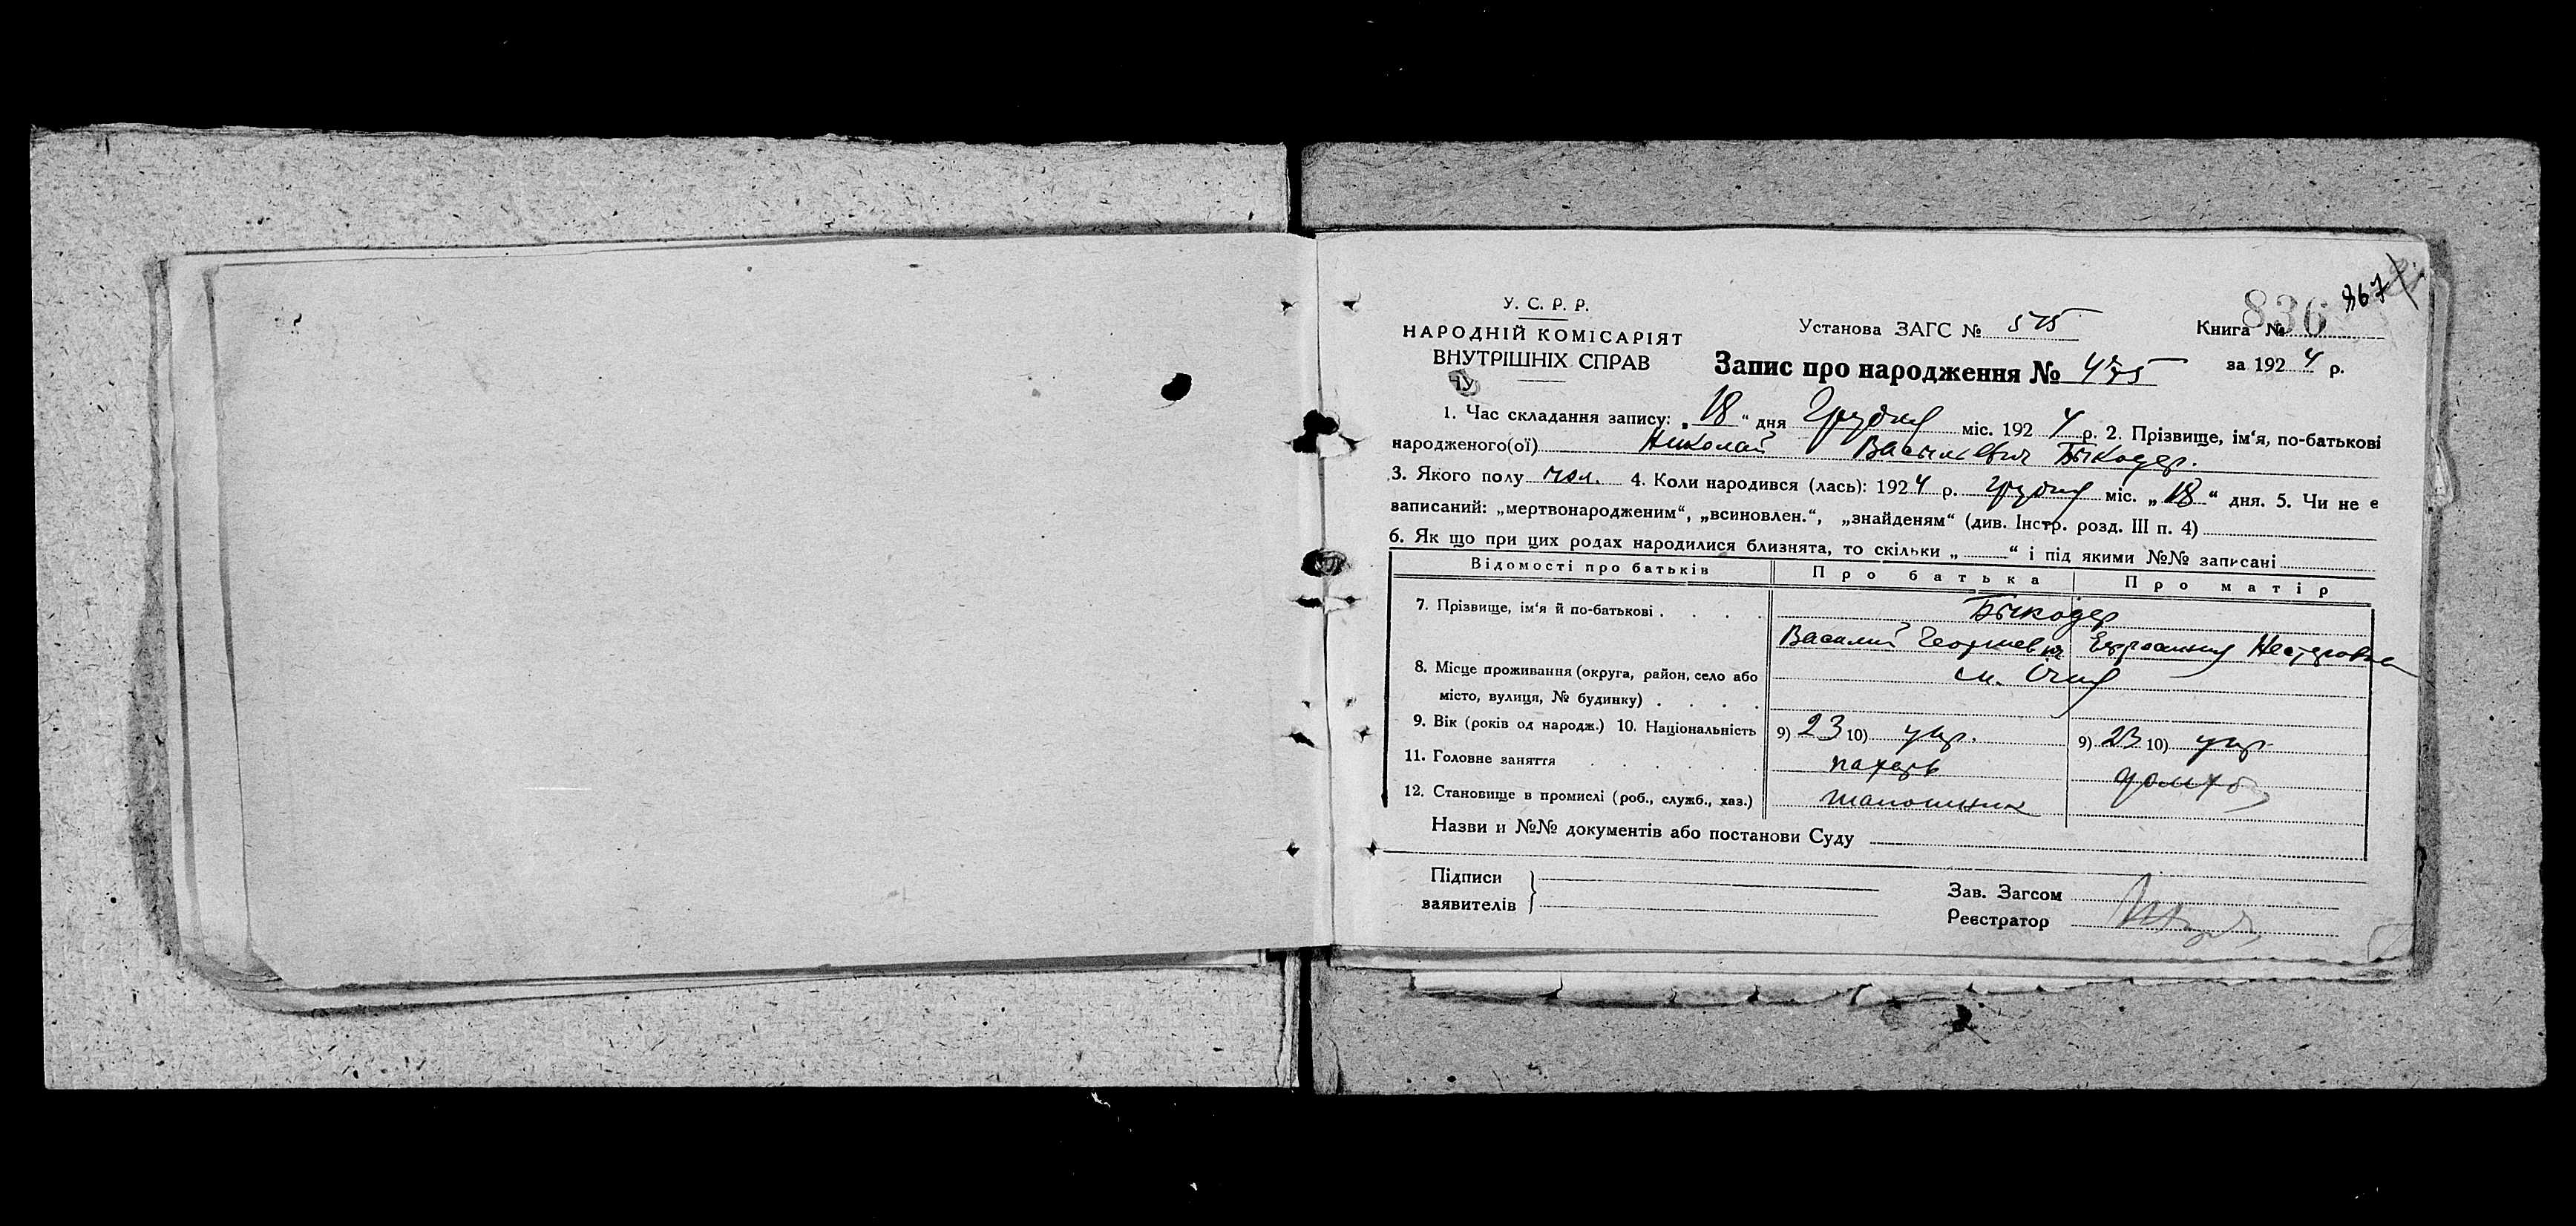 867
836
У. С. Р. Р.
НАРОДНІЙ КОМІСАРІЯТ
ВНУТРІШНІХ СПРАВ
Установа ЗАГС № 515 Книга №
Запис про народження № 475 за 1924 р.
1. Час складання запису: „18“ дня Грудня міс. 1924 р. 2. Прізвище, ім‘я, по-батькові
народженого(ої) Николай Васильевич Быкодер.
3. Якого полу чол. 4. Коли народився (лась): 1924 р. грудня міс. „18“ дня. 5. Чи не є
записаний: „мертвонародженим“, „всиновлен.“, „знайденям“ (див. Інстр. розд. III п. 4)
6. Як що при цих родах народилися близнята, то скільки „ “ і під якими №№ записані
Відомості про батьків Про батька Про матір
7. Прізвище, ім‘я й по-батькові . . . . Быкодер
Василий Георгиевич Ефросиния Нестеровна
8. Місце проживання (округа, район, село або
місто, вулиця, № будинку) . . . . м. Ічня
9. Вік (років од народж.) 10. Національність 9) 23 10) укр. 9) 23 10) укр.
11. Головне заняття . . . . . пахарь
12. Становище в промислі (роб., служб., хаз.)
Назви и №№ документів або постанови Суду
Підписи
заявителів
Зав. Загсом
Реєстратор